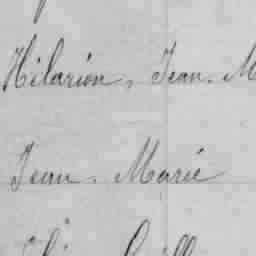 Hilarion, Jean. M
Jean. Marie